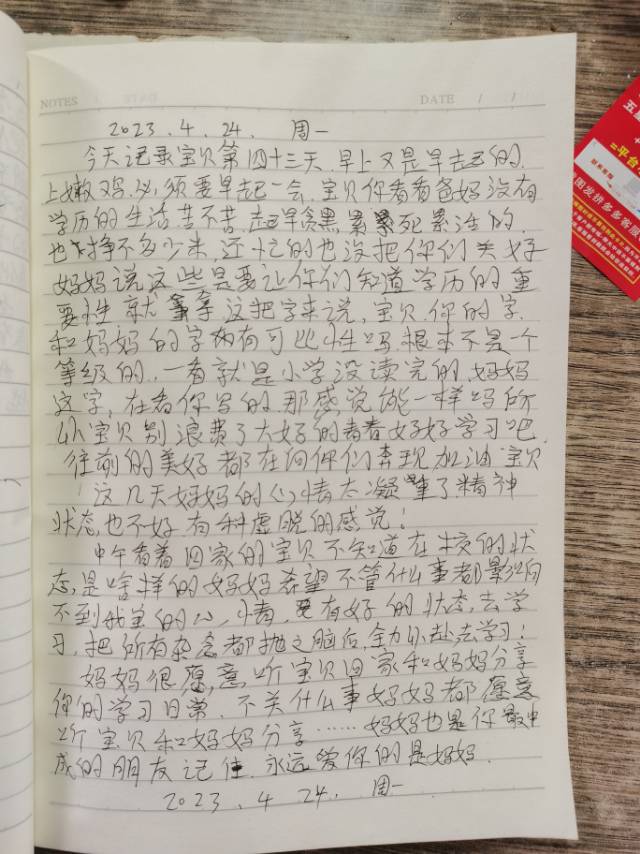 NOTES
DATE / /
2023.4.24. 周一
今天记录宝贝第四十三天.早上又是早去起的.
上嫩鸡.必须要早起一会.宝贝你看看爸妈没有
学历的生活.苦不苦.起早贪黑.累累死累活的.
也挣不多少米.还忙的也没把你们关好
妈妈说这些是要让你们知道学历的重
要性就拿这把字来说,宝贝你的字.
和妈妈的字有可比性吗.根本不是个
等级的.一看就是小学没读完的.妈妈
这字,在看你写的那感觉能一样吗所
以宝贝别浪费了大好的青春好好学习吧.
往前的美好都在向你们奔现加油宝贝
这几天妈妈的心情太凝重了精神
状态也不好有种虚脱的感觉!
中午看着回家的宝贝不知道在校的状
态,是啥样的妈妈希望不管什么事都影响
不到我宝的心情.有好的状态.去学
习.把所有杂念都抛之脑后,全力以赴去学习!
妈妈很愿意听宝贝回家和妈妈分享
你的学习日常.不关什么事妈妈都愿意
听宝贝和妈妈分享……妈妈也是你最忠
成的朋友记住.永远爱你的是妈妈.
2023.4 24. 周一.
五星
+
=平台
图发拼多多客服